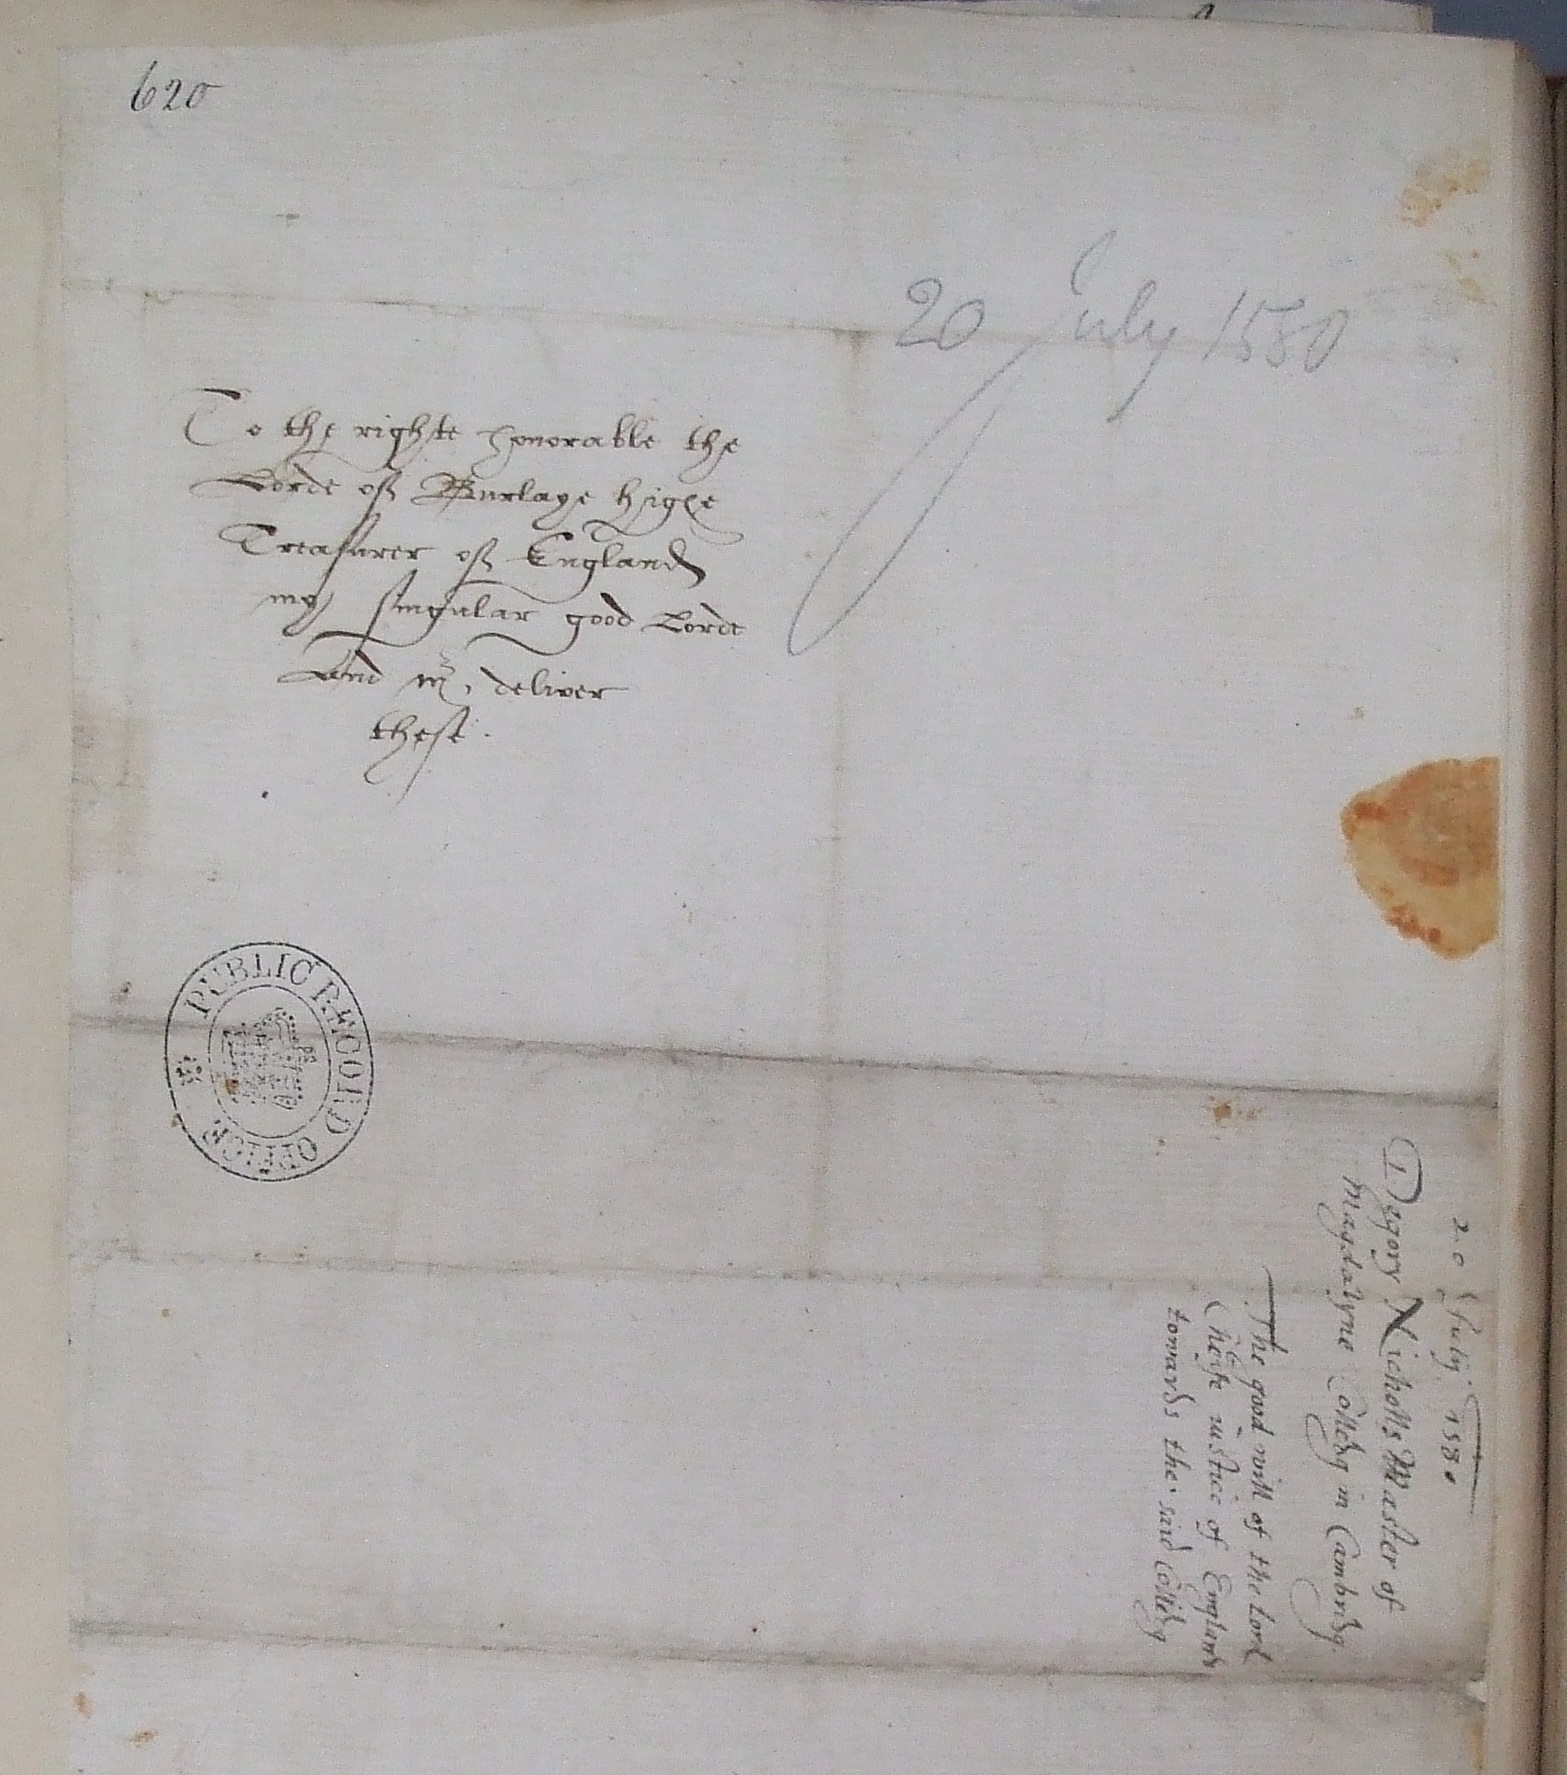 620
20 July 1580
To the righte honorable the
Lorde of Burlaye highe
Treasurer of England
my singular good Lorde
And mr, deliver
these.
PUBLIC RECORD OFFICE
20 July. 1580
Degory Nicholls Master of
Magdalyne Colledg in Cambridg.
The good will of the Lord
Cheife iustice of England
towards the said Colledg